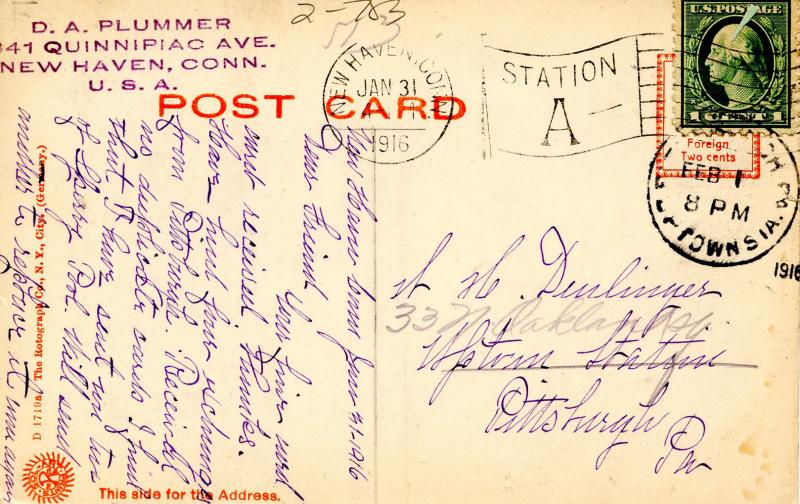 D. A. PLUMMER
841 QUINNIPIAC AVE.
NEW HAVEN, CONN.
U. S. A.
2-783
513
POST CARD
NEW HAVEN, CONN.
JAN 31
1916
STATION
A
U.S. POSTAGE
1 CENT 1
Foreign
Two cents
FEB 1
8 PM
1916
New Haven Conn Jan-31-1916
Dear Friend
Your fine card
card received Thanks.
Have had four exchanges
from Pittsburgh. Received
no duplicate cards I find
that I have sent you two
of Sperry Pool. Will send
another to replace it soon again
H. Denlinger
33 N. Oakland Sq
Uptown Station
Pittsburgh
Pa
D 1719a, The Rotograph Co., N. Y., City. (Germany.)
This side for the Address.